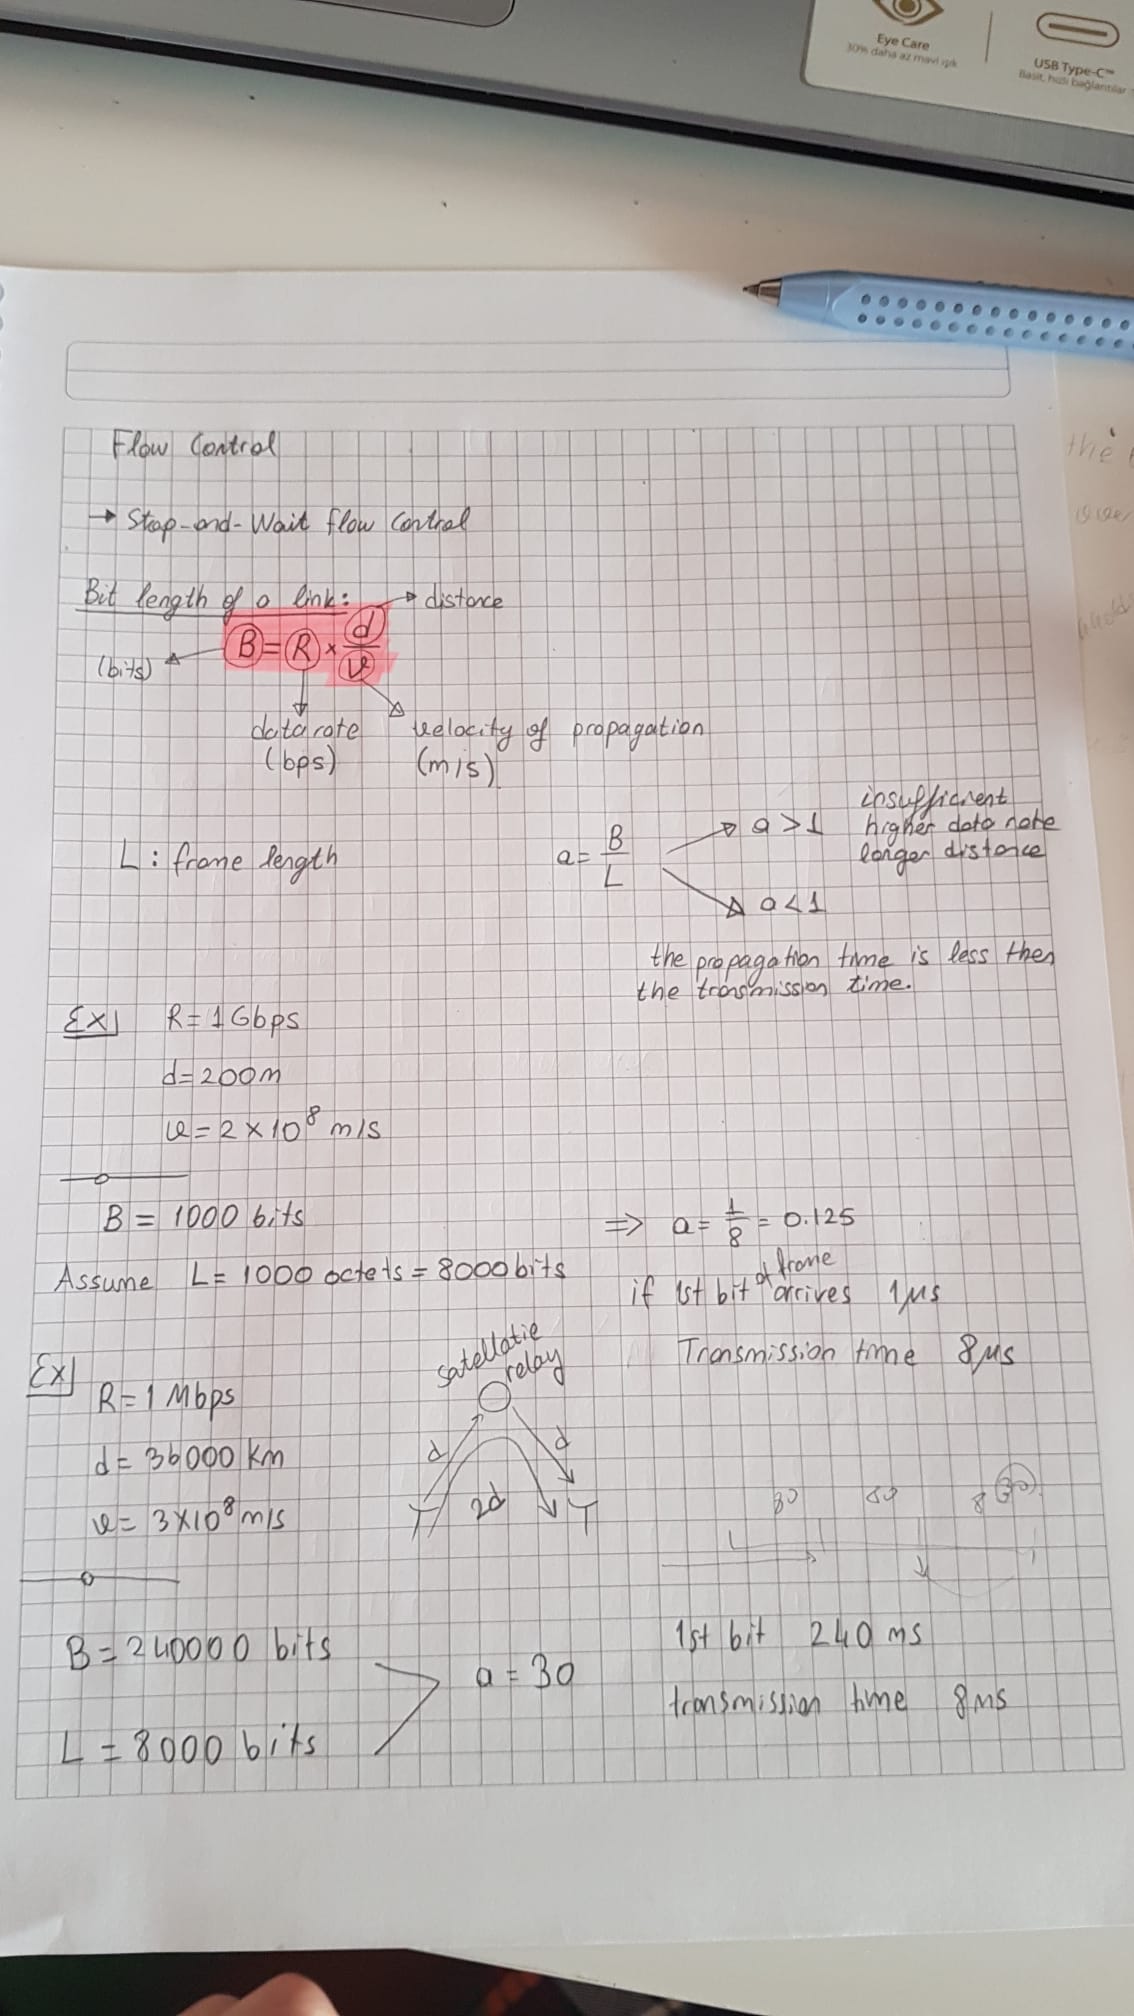 Eye Care
30% daha az mavi ışık
USB Type-C™
Basit, hızlı bağlantılar
the
Flow Control
→ Stop-and-Wait flow control
Bit length of a link: → distance
B = R × d/v
(bits)
data rate
(bps)
velocity of propagation
(m/s)
L : frame length
a = B/L
a > 1
insufficient
higher data rate
longer distance
a < 1
the propagation time is less then
the transmission time.
EX
R = 1 Gbps
d = 200m
v = 2 × 10⁸ m/s
B = 1000 bits
Assume L = 1000 octets = 8000 bits
⇒ a = 1/8 = 0.125
if 1st bit of frame arrives 1μs
Transmission time 8μs
EX
R = 1 Mbps
d = 36000 km
v = 3×10⁸ m/s
satellatie
relay
d
d
2d
T
T
30
8
30
L
B = 240000 bits
L = 8000 bits
a = 30
1st bit 240 ms
transmission time 8ms